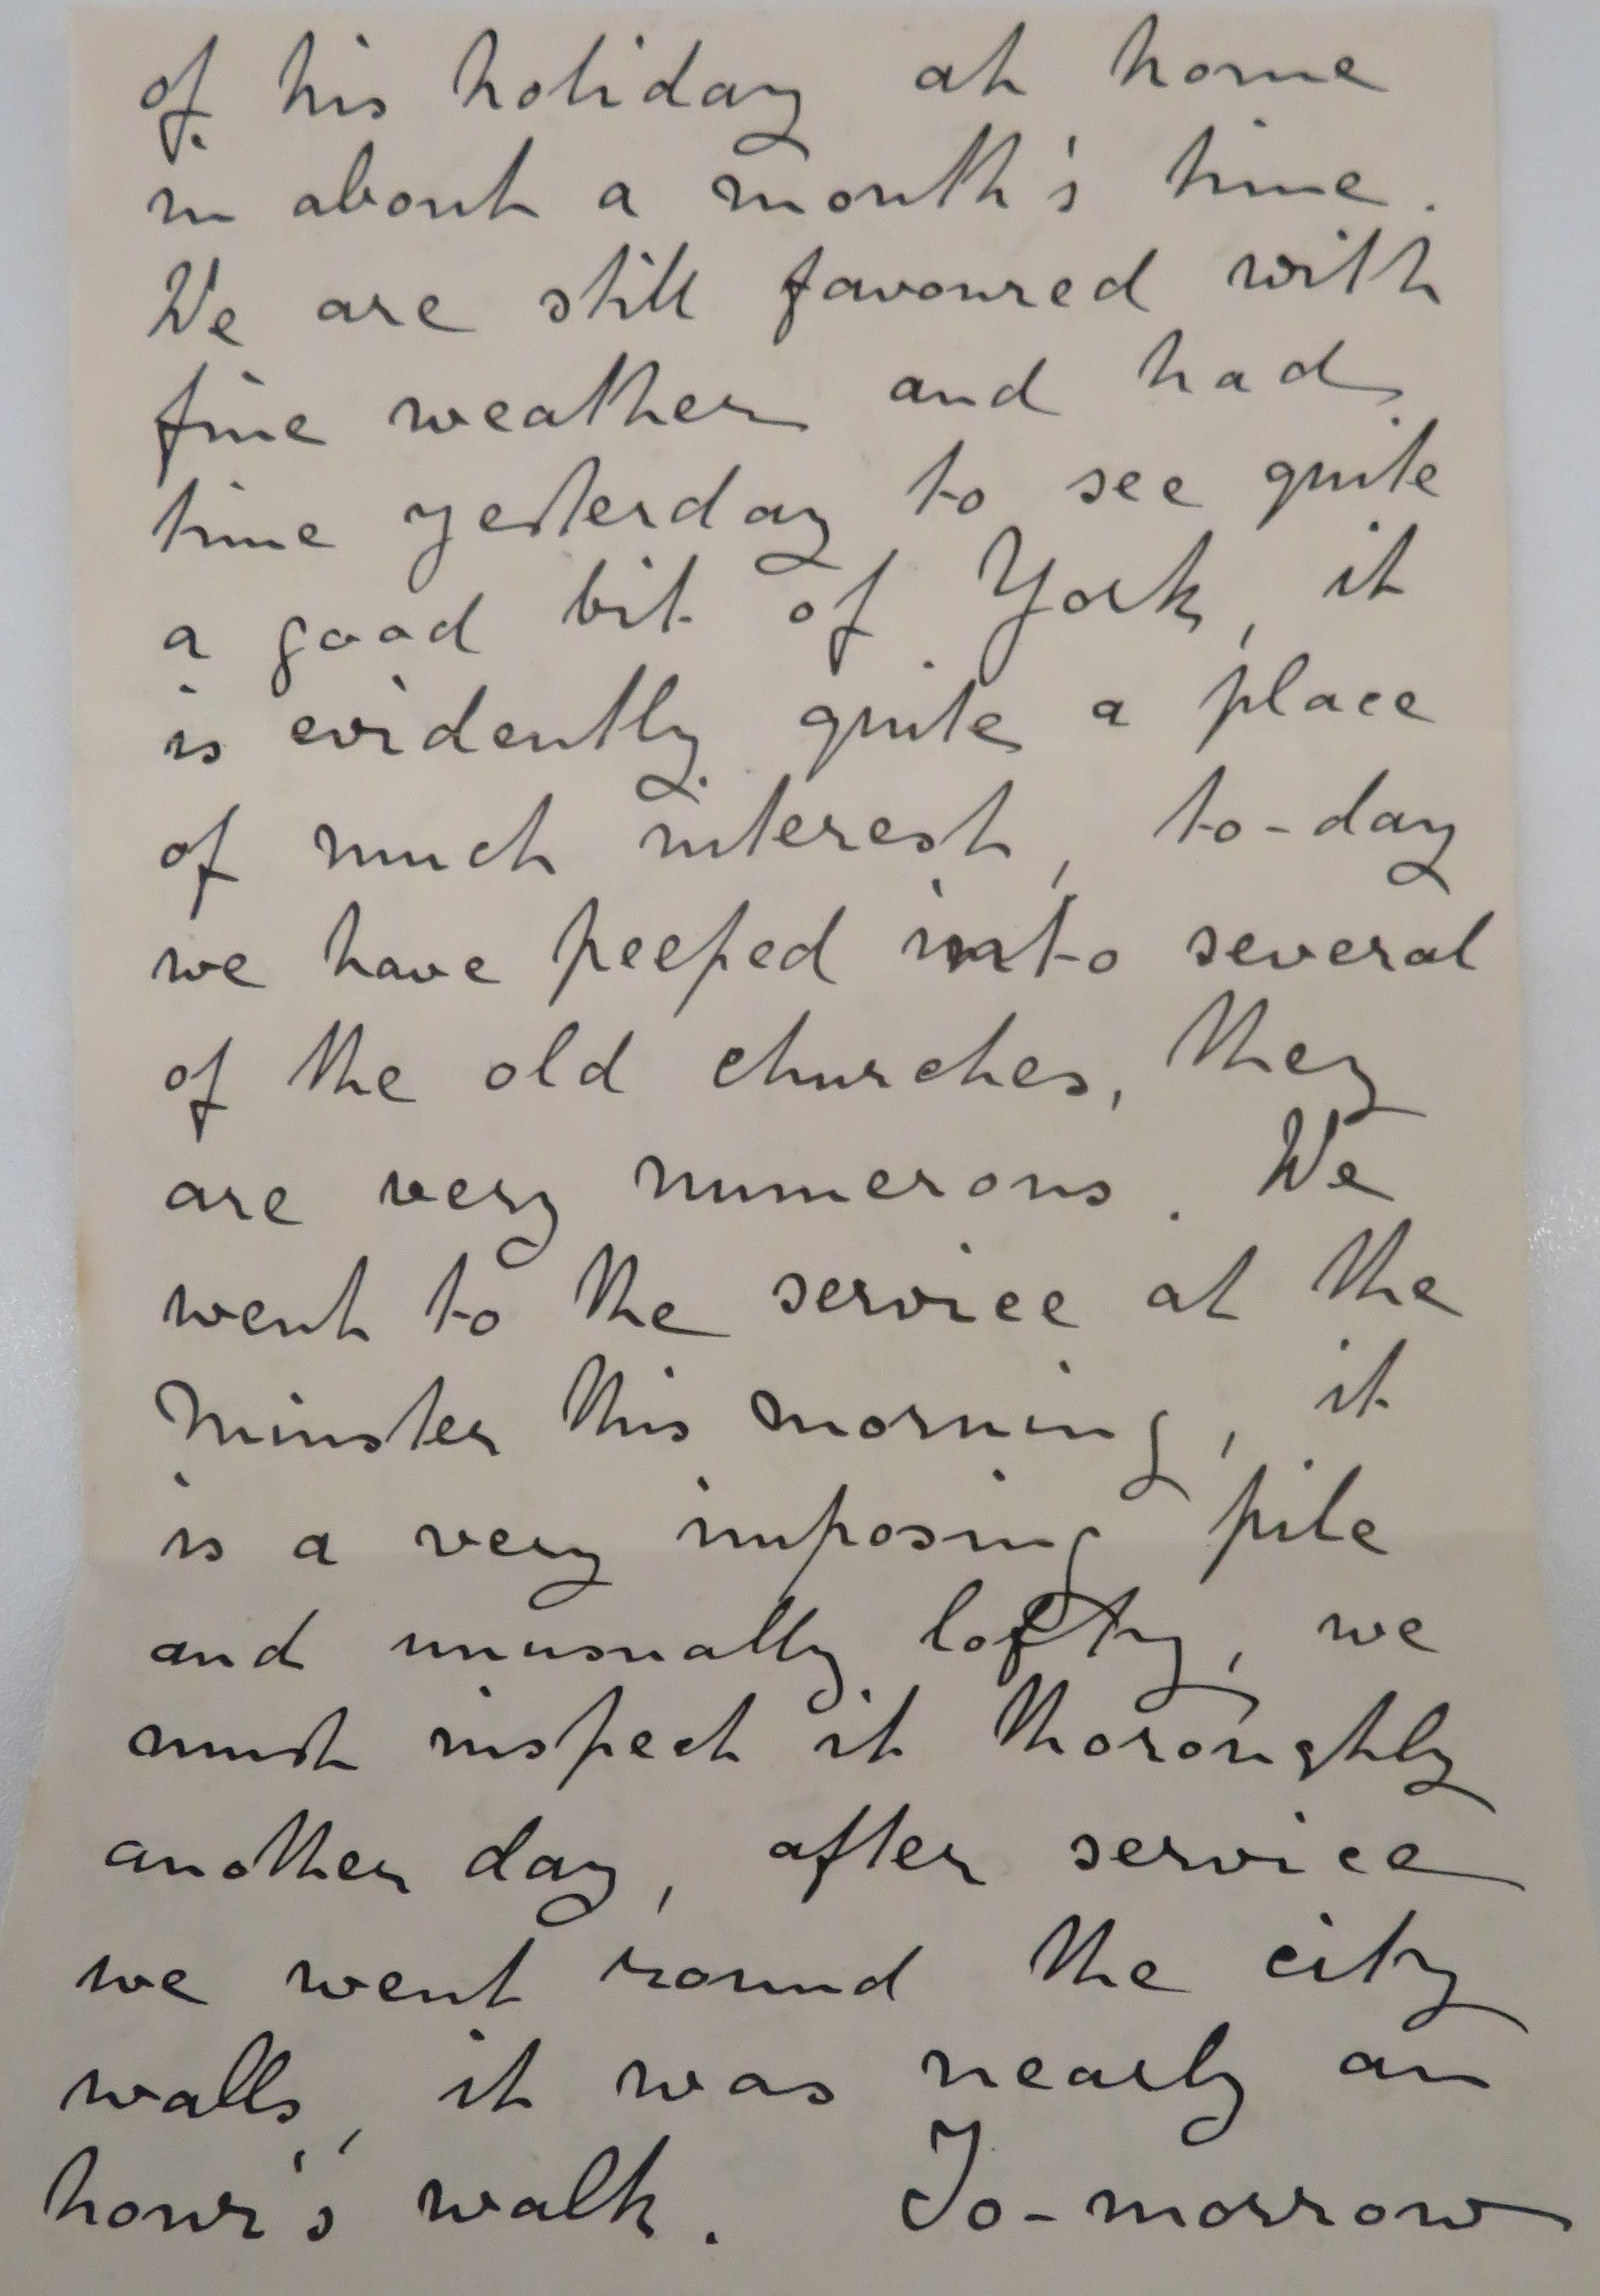 of his holiday at home
in about a month's time.
We are still favoured with
fine weather and had
time yesterday to see quite
a good bit of York, it
is evidently quite a place
of much interest, to-day
we have peeped into several
of the old churches, they
are very numerous. We
went to the service at the
Minster this morning, it
is a very imposing pile
and unusually lofty, we
must inspect it thoroughly
another day, after service
we went round the city
walls, it was nearly an
hour's walk. To-morrow